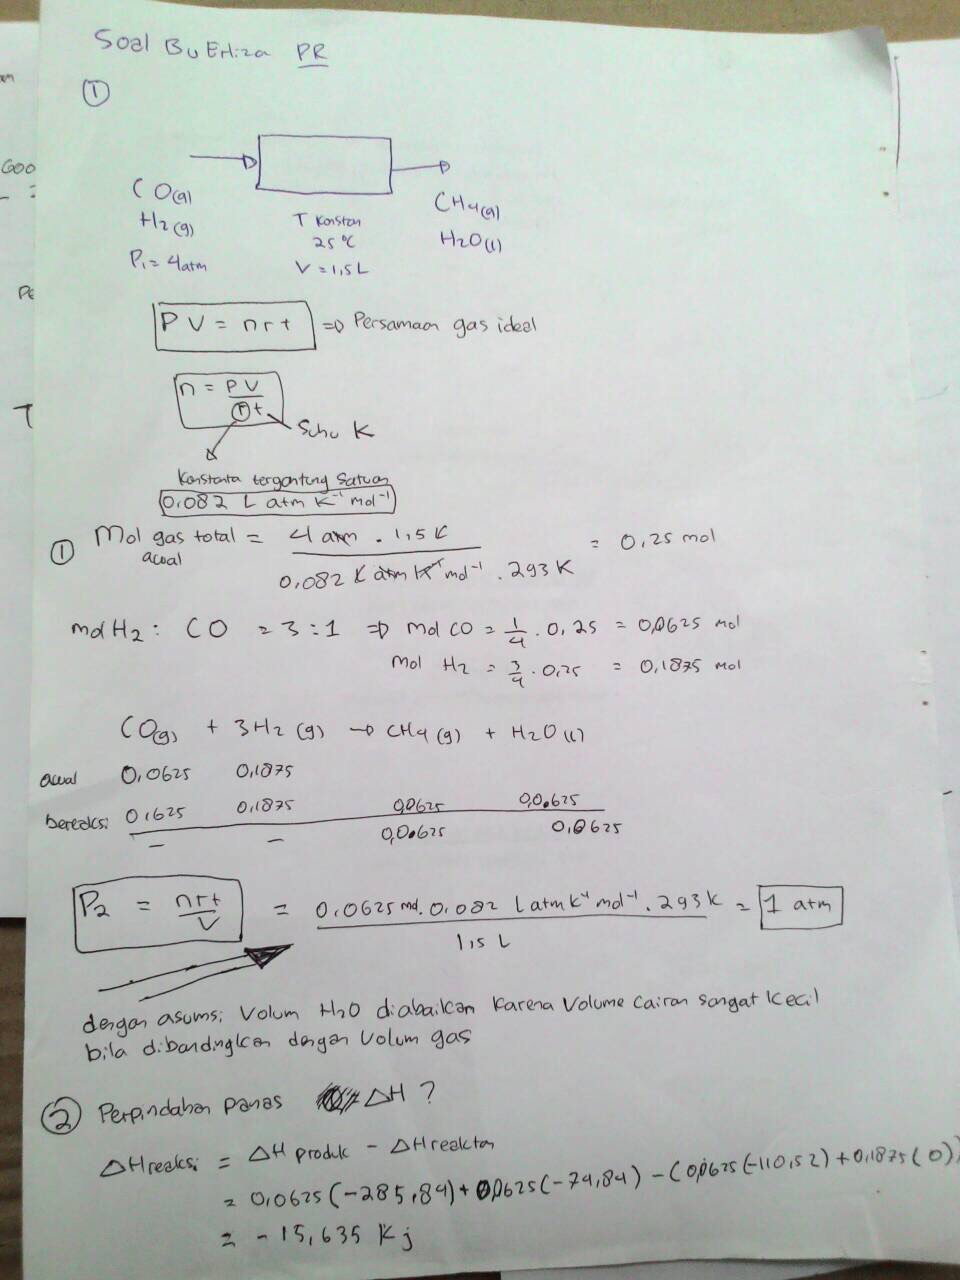 Soal Bu Erliza PR
①
CO(g)
H2(g)
P1 = 4 atm
T Konstan
25 °C
V = 1,5 L
CH4(g)
H2O(l)
PV = nrt => Persamaan gas ideal
n = PV / rt
Suhu K
Konstanta tergantung satuan
0.082 L atm K⁻¹ mol⁻¹
① Mol gas total awal = 4 atm . 1,5 L / 0,082 L atm K⁻¹ mol⁻¹ . 293 K = 0,25 mol
mol H2 : CO = 3 : 1 => mol CO = 1/4 . 0,25 = 0,0625 mol
mol H2 = 3/4 . 0,25 = 0,1875 mol
CO(g) + 3H2(g) → CH4(g) + H2O(l)
awal 0,0625 0,1875
bereaksi 0,1625 0,1875 0,0625 0,0625
– – 0,0625 0,0625
P2 = nrt / V = 0,0625 mol. 0,082 L atm K⁻¹ mol⁻¹ . 293 K / 1,5 L = 1 atm
dengan asumsi volum H2O diabaikan karena volume cairan sangat kecil
bila dibandingkan dengan volum gas
② Perpindahan panas ΔH ?
ΔHreaksi = ΔH produk - ΔHreaktan
= 0,0625(-285,84) + 0,0625(-74,84) - (0,0625(-110,52) + 0,1875(0))
= -15,635 Kj